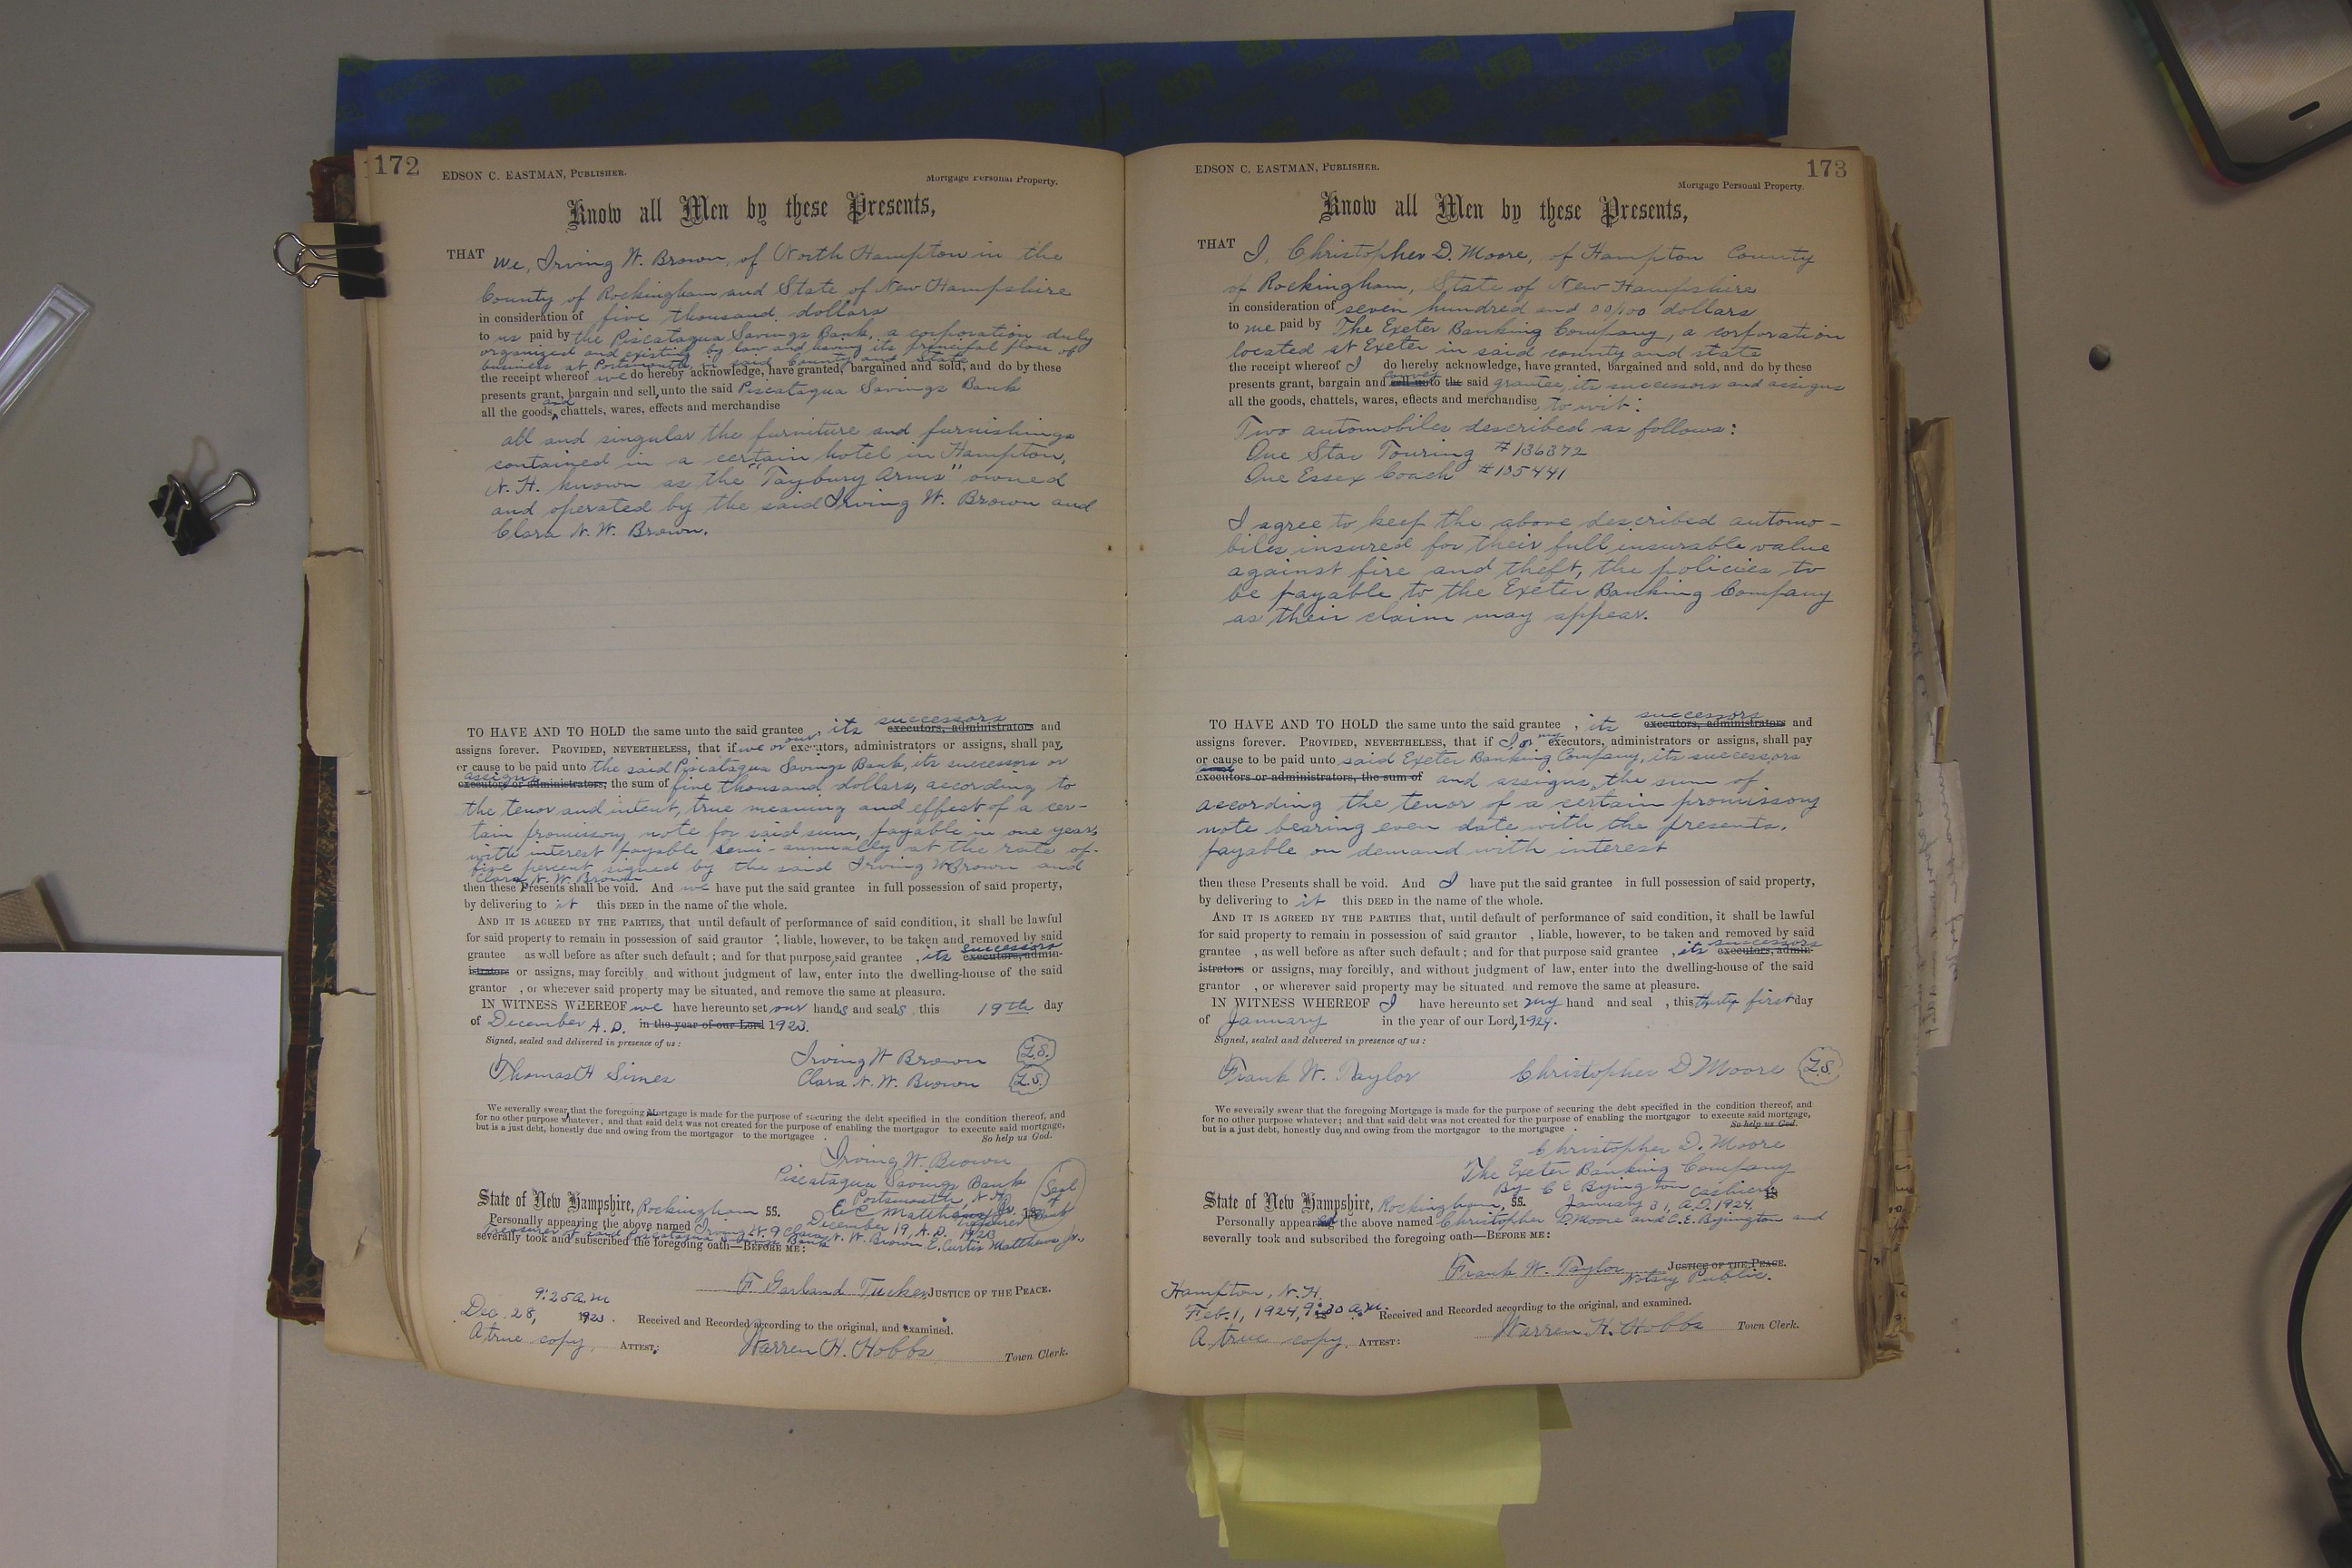 172
EDSON C. EASTMAN, PUBLISHER.
Mortgage Personal Property.
Know all Men by these Presents,
THAT We, Irving W. Brown, of North Hampton in the
County of Rockingham and State of New Hampshire
in consideration of five thousand dollars
to us paid by the Piscataqua Savings Bank, a corporation duly
organized and existing by law and having its principal place of
business at Portsmouth, in said County and State
the receipt whereof we do hereby acknowledge, have granted, bargained and sold, and do by these
presents grant, bargain and sell, unto the said Piscataqua Savings Bank
all the goods, and chattels, wares, effects and merchandise
all and singular the furniture and furnishings
contained in a certain hotel in Hampton,
N.H. known as the "Taybury Arms" owned
and operated by the said Irving W. Brown and
Clara N. W. Brown.
TO HAVE AND TO HOLD the same unto the said grantee, its successors executors, administrators and
assigns forever. PROVIDED, NEVERTHELESS, that if we or our executors, administrators or assigns, shall pay,
or cause to be paid unto the said Piscataqua Savings Bank, its successors or
assigns executors or administrators, the sum of five thousand dollars, according to
the tenor and intent, true meaning and effect of a cer-
tain promissory note for said sum, payable in one year,
with interest payable semi-annually at the rate of
five percent signed by the said Irving W Brown and
Clara N. W. Brown
then these Presents shall be void. And we have put the said grantee in full possession of said property,
by delivering to it this DEED in the name of the whole.
AND IT IS AGREED BY THE PARTIES, that, until default of performance of said condition, it shall be lawful
for said property to remain in possession of said grantor , liable, however, to be taken and removed by said
grantee as well before as after such default; and for that purpose, said grantee , its successors executors, admin-
istrators or assigns, may forcibly and without judgment of law, enter into the dwelling-house of the said
grantor , or wherever said property may be situated, and remove the same at pleasure.
IN WITNESS WHEREOF we have hereunto set our hands and seals, this 19th day
of December A.D. in the year of our Lord 1923.
Signed, sealed and delivered in presence of us:
Thomas H Simes Irving W Brown L.S.
Clara N. W. Brown L.S.
We severally swear, that the foregoing Mortgage is made for the purpose of securing the debt specified in the condition thereof, and
for no other purpose whatever; and that said debt was not created for the purpose of enabling the mortgagor to execute said mortgage,
but is a just debt, honestly due and owing from the mortgagor to the mortgagee. So help us God.
Irving W. Brown
Piscataqua Savings Bank
Portsmouth, N.H.
E C Matthews, Jr. Treasurer
Seal of Bank
State of New Hampshire, Rockingham SS. December 19, A.D. 1923
Personally appearing the above named Irving W. & Clara N. W. Brown E. Curtis Matthews Jr.,
Treasurer of said Piscataqua Savings Bank
severally took and subscribed the foregoing oath—BEFORE ME:
F. Garland Tucker, JUSTICE OF THE PEACE.
9:25 a.m
Dec. 28, 1923. Received and Recorded according to the original, and examined.
A true copy, ATTEST: Warren H. Hobbs Town Clerk.
173
EDSON C. EASTMAN, PUBLISHER.
Mortgage Personal Property.
Know all Men by these Presents,
THAT I, Christopher D. Moore, of Hampton County
of Rockingham, State of New Hampshire
in consideration of seven hundred and 00/100 dollars
to me paid by The Exeter Banking Company, a corporation
located at Exeter in said county and state
the receipt whereof I do hereby acknowledge, have granted, bargained and sold, and do by these
presents grant, bargain and convey sell unto the said grantee, its successors and assigns
all the goods, chattels, wares, effects and merchandise, to wit:
Two automobiles described as follows:
One Star Touring #136872
One Essex Coach #105441
I agree to keep the above described automo-
biles insured for their full insurable value
against fire and theft, the policies to
be payable to the Exeter Banking Company
as their claim may appear.
TO HAVE AND TO HOLD the same unto the said grantee , its successors executors, administrators and
assigns forever. PROVIDED, NEVERTHELESS, that if I, or my executors, administrators or assigns, shall pay
or cause to be paid unto said Exeter Banking Company, its successors
executors or administrators, the sum of and assigns, the sum of
according the tenor of a certain promissory
note bearing even date with the presents,
payable on demand with interest
then these Presents shall be void. And I have put the said grantee in full possession of said property,
by delivering to it this DEED in the name of the whole.
AND IT IS AGREED BY THE PARTIES that, until default of performance of said condition, it shall be lawful
for said property to remain in possession of said grantor , liable, however, to be taken and removed by said
grantee , as well before as after such default; and for that purpose said grantee , its successors executors, admin-
istrators or assigns, may forcibly, and without judgment of law, enter into the dwelling-house of the said
grantor , or wherever said property may be situated and remove the same at pleasure.
IN WITNESS WHEREOF I have hereunto set my hand and seal , this thirty first day
of January in the year of our Lord, 1924.
Signed, sealed and delivered in presence of us:
Frank W. Taylor Christopher D Moore L.S.
We severally swear that the foregoing Mortgage is made for the purpose of securing the debt specified in the condition thereof, and
for no other purpose whatever; and that said debt was not created for the purpose of enabling the mortgagor to execute said mortgage,
but is a just debt, honestly due, and owing from the mortgagor to the mortgagee . So help us God.
Christopher D. Moore
The Exeter Banking Company
By C E Byington cashier
State of New Hampshire, Rockingham, SS. January 31, A.D. 1924.
Personally appeared the above named Christopher D. Moore and C. E. Byington and
severally took and subscribed the foregoing oath—BEFORE ME:
Frank W. Taylor JUSTICE OF THE PEACE.
Notary Public.
Hampton, N.H.
Feb. 1, 1924, 9:30 a.m. Received and Recorded according to the original, and examined.
A true copy. ATTEST: Warren H. Hobbs Town Clerk.